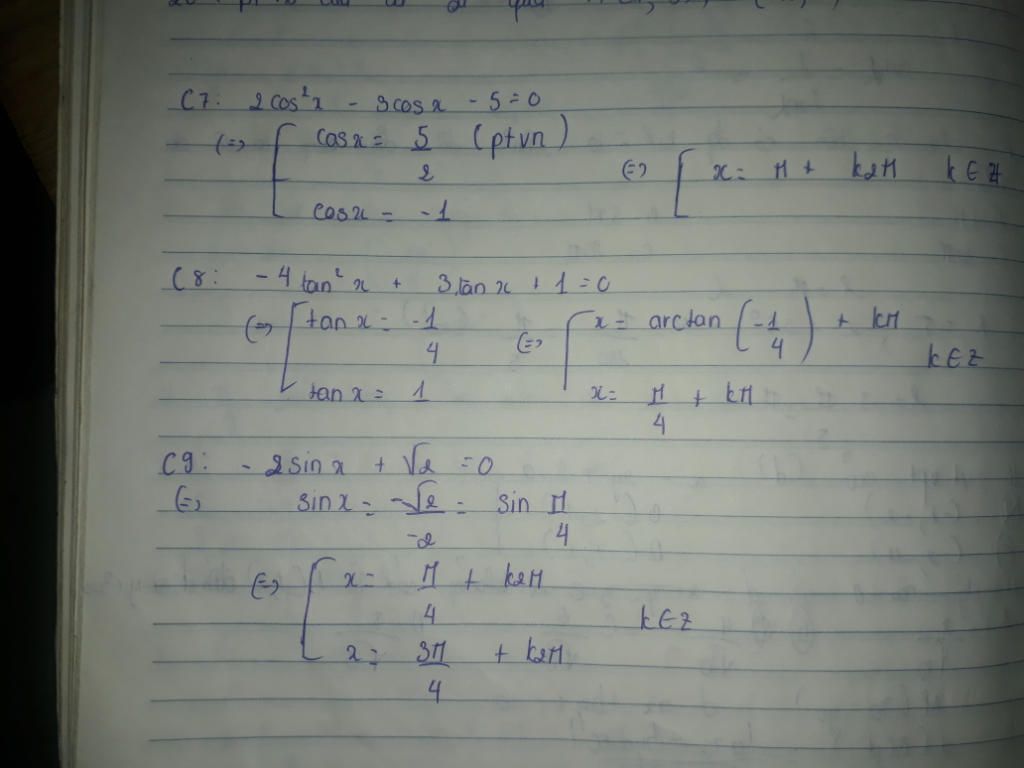 C7: 2cos²x - 3cosx - 5 = 0
(=) [ cosx = 5/2 (ptvn)
cosx = -1
(=) [ x = π + k2π k ∈ Z
C8: -4tan²x + 3tanx + 1 = 0
(=) [ tanx = -1/4
tanx = 1
(=) [ x = arctan (-1/4) + kπ
x = π/4 + kπ
k ∈ Z
C9: -2sinx + √2 = 0
(=) sinx = -√2/-2 = sin π/4
(=) [ x = π/4 + k2π
x = 3π/4 + k2π
k ∈ Z